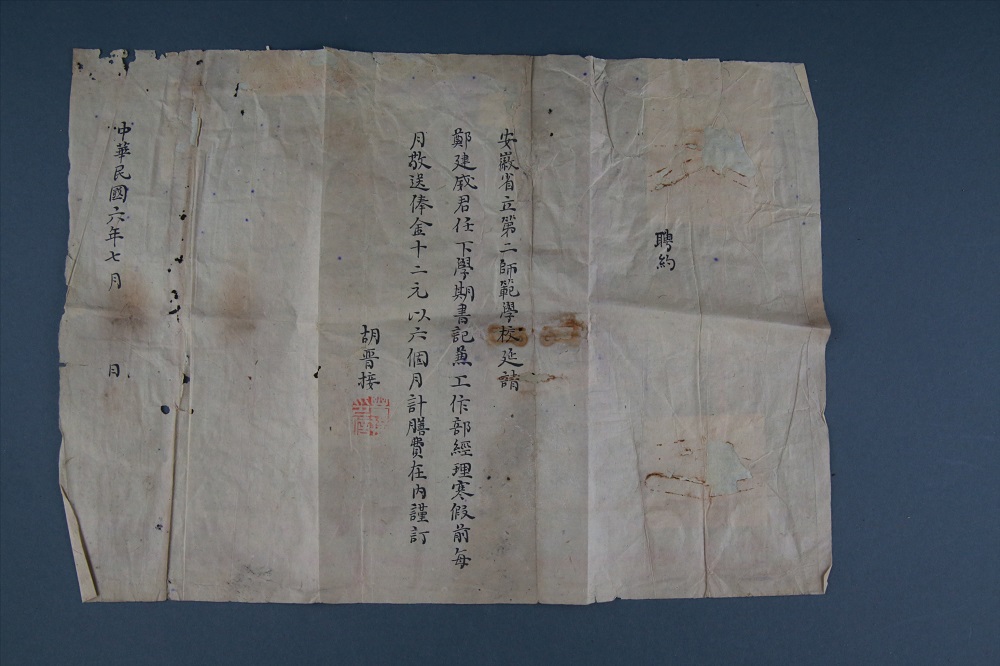 聘約
安徽省立第二師範學校延請
鄭建威君任下學期書記兼工作部經理寒假前每
月敬送俸金十二元以六個月計膳費在內謹訂
胡晉接
中華民國六年七月 日